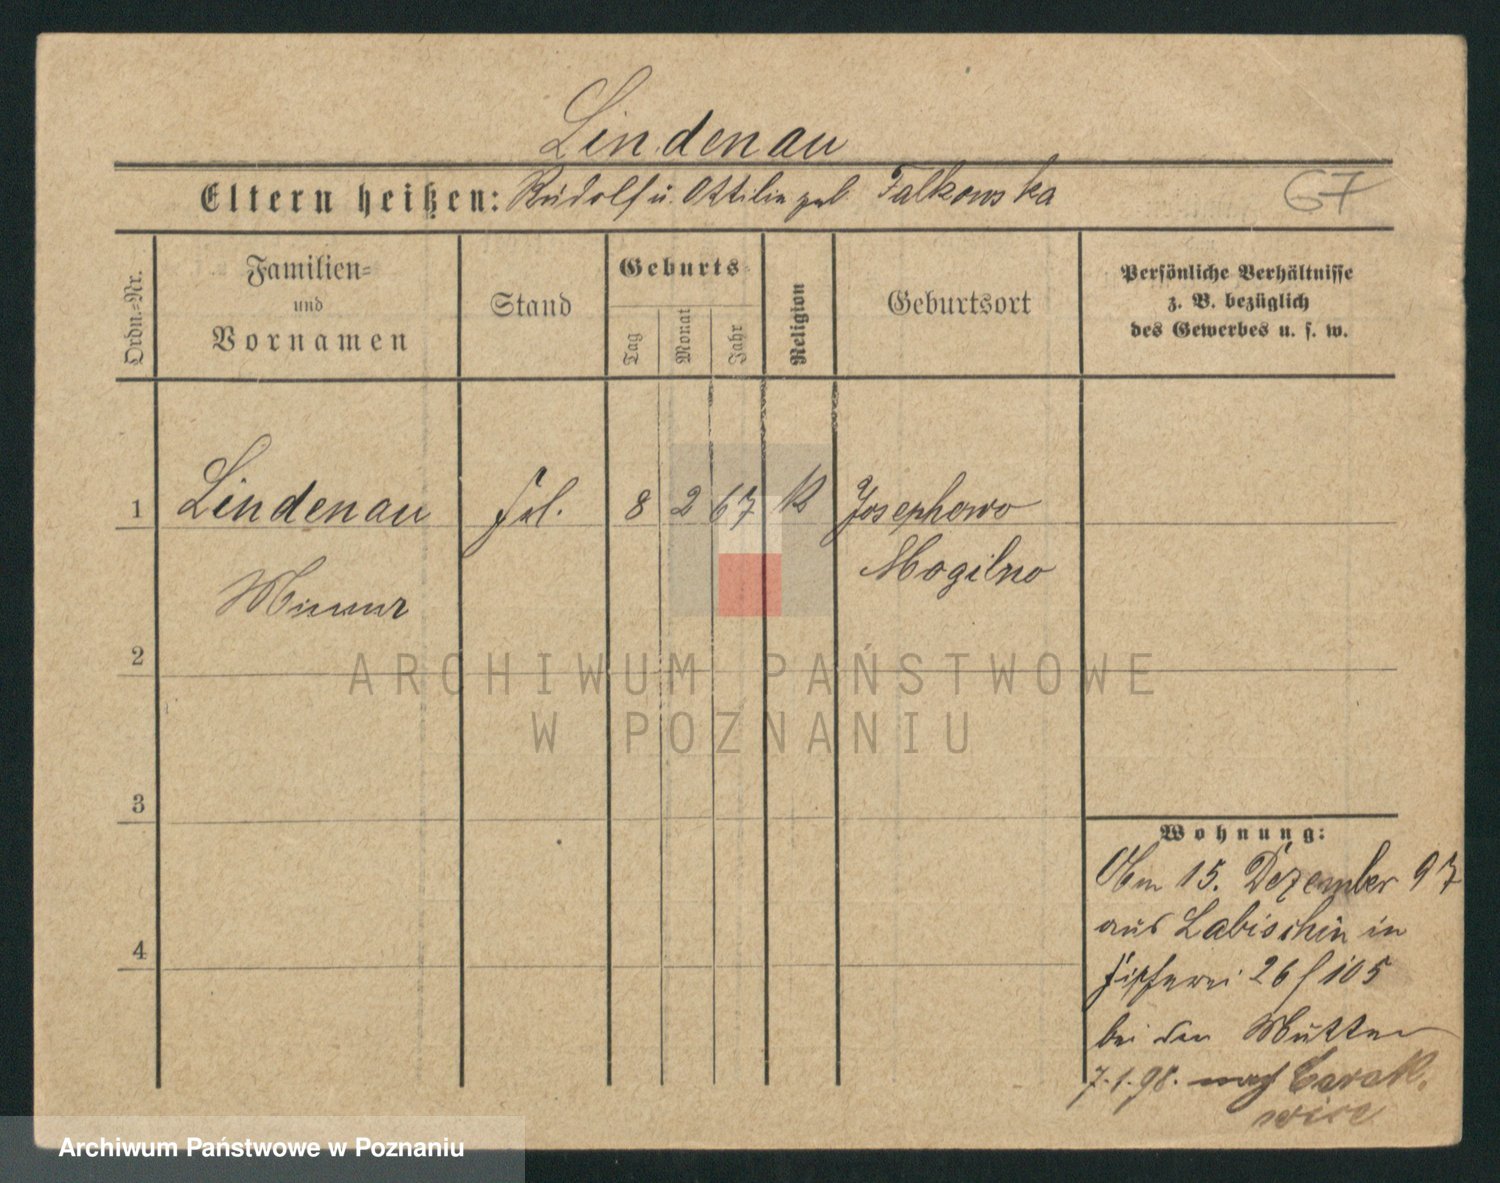 Lindenau
Eltern heißen: Rudolf u. Ottilie geb Falkowska
67
Ordn.=Nr.
Familien=
und
Vornamen
Stand
Geburts
Tag
Monat
Jahr
Religion
Geburtsort
Persönliche Verhältnisse
z. B. bezüglich
des Gewerbes u. s. w.
1 Lindenau Frl. 8 2 67 K Josephowo
Mogilno
2
3
4
Wohnung:
15. Dezember 97
aus Labischin in
26/105
bei der Mutter
7.1.98. nach
ARCHIWUM PAŃSTWOWE
W POZNANIU
Archiwum Państwowe w Poznaniu